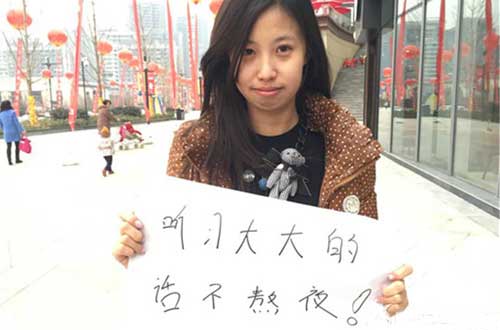 听习大大的
话不熬夜！